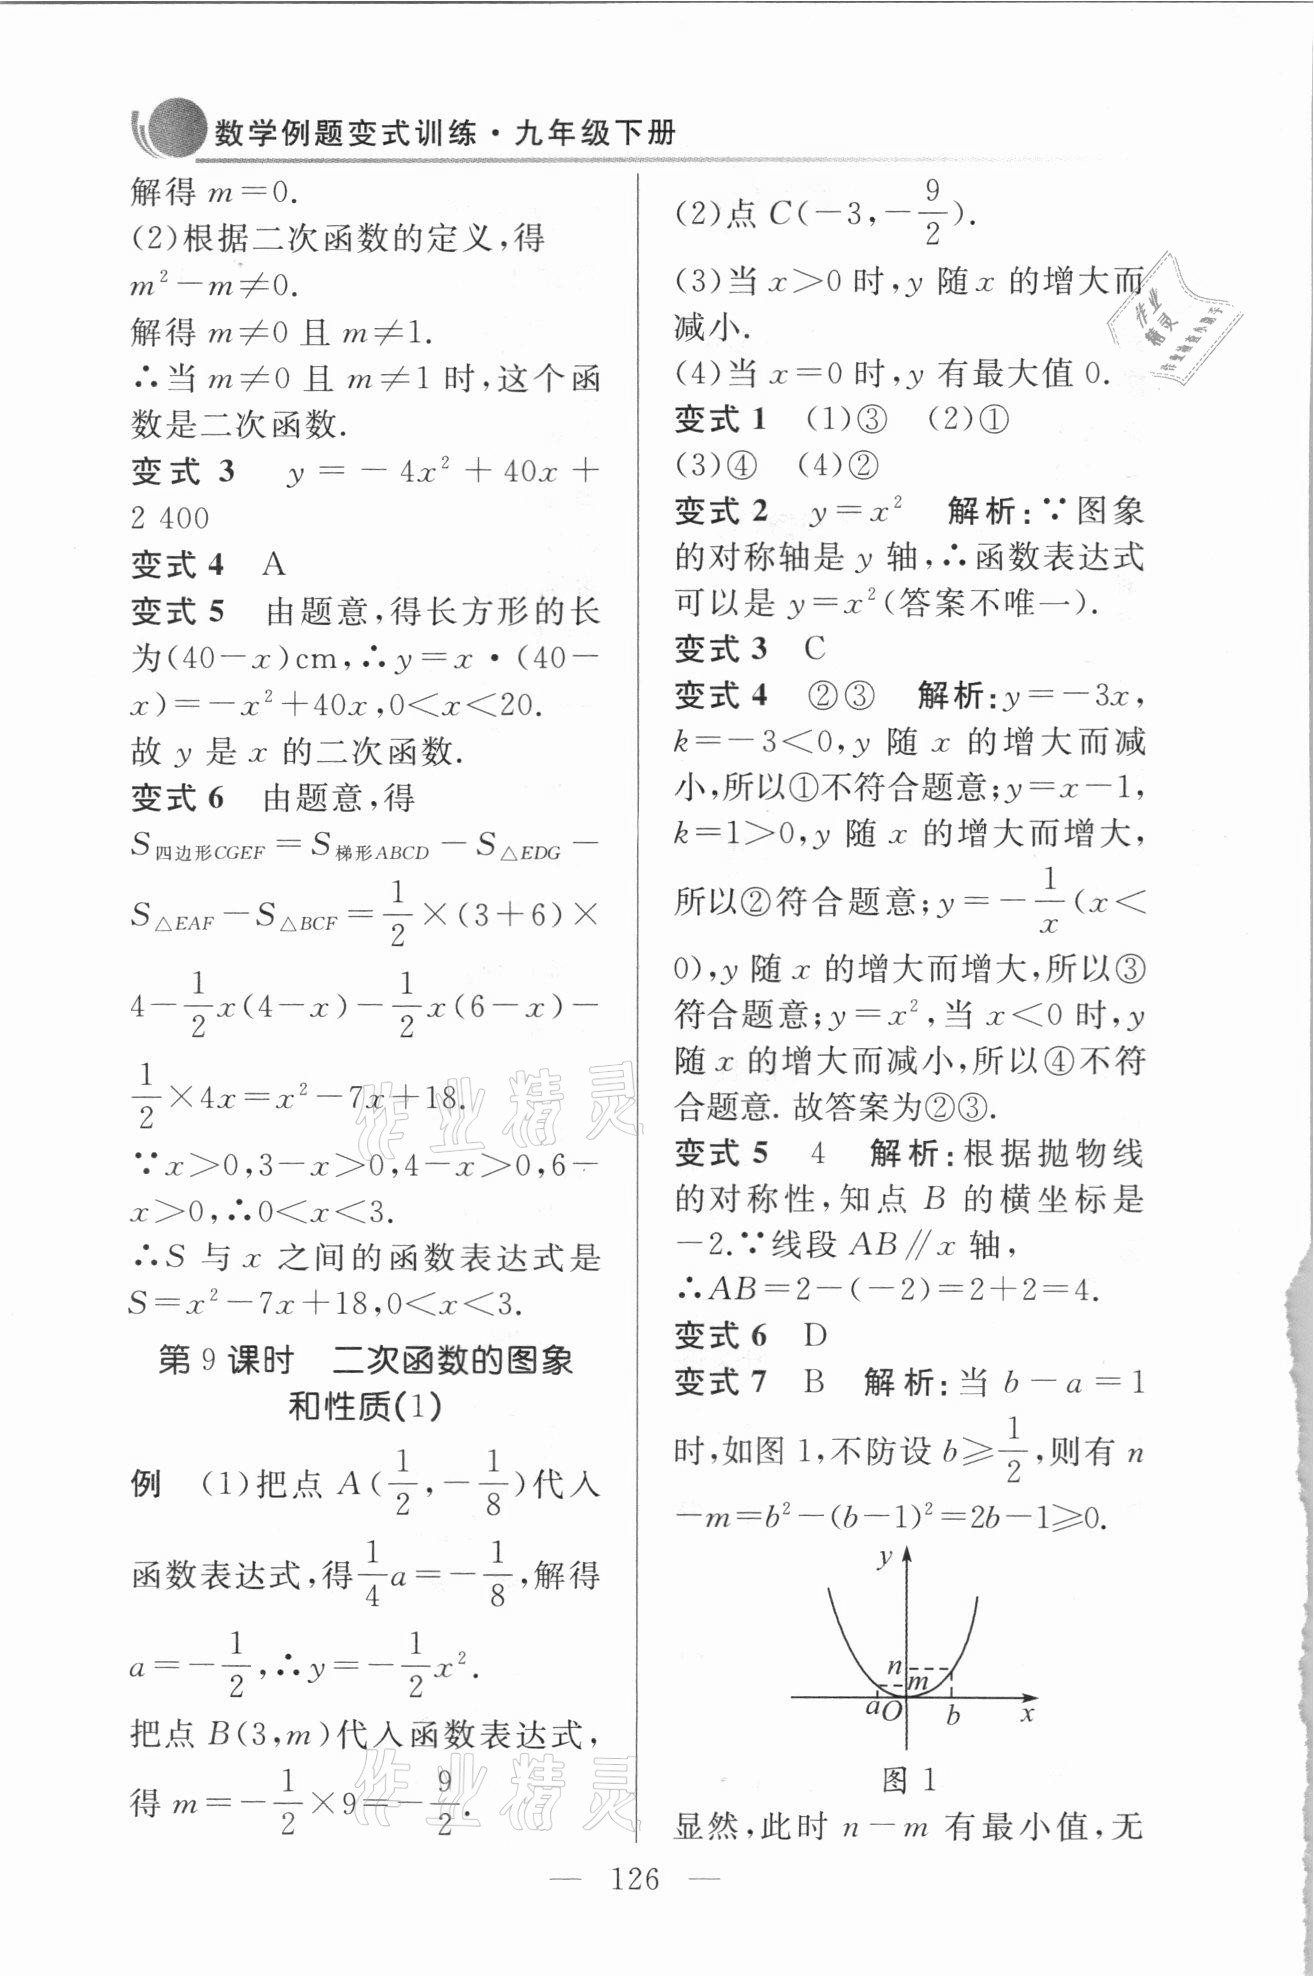 数学例题变式训练·九年级下册
解得 m=0.
(2)根据二次函数的定义,得
m²-m≠0.
解得 m≠0 且 m≠1.
∴当 m≠0 且 m≠1 时,这个函
数是二次函数.
变式 3 y=-4x²+40x+
2 400
变式 4 A
变式 5 由题意,得长方形的长
为(40-x)cm,∴y=x·(40-
x)=-x²+40x,0<x<20.
故 y 是 x 的二次函数.
变式 6 由题意,得
S四边形CGEF=S梯形ABCD-S△EDG-
S△EAF-S△BCF=1/2×(3+6)×
4-1/2x(4-x)-1/2x(6-x)-
1/2×4x=x²-7x+18.
∵x>0,3-x>0,4-x>0,6-
x>0,∴0<x<3.
∴S 与 x 之间的函数表达式是
S=x²-7x+18,0<x<3.
第 9 课时 二次函数的图象
和性质(1)
例 (1)把点 A(1/2,-1/8)代入
函数表达式,得1/4a=-1/8,解得
a=-1/2,∴y=-1/2x².
把点 B(3,m)代入函数表达式,
得 m=-1/2×9=-9/2.
(2)点 C(-3,-9/2).
(3)当 x>0 时,y 随 x 的增大而
减小.
(4)当 x=0 时,y 有最大值 0.
变式 1 (1)③ (2)①
(3)④ (4)②
变式 2 y=x² 解析:∵图象
的对称轴是 y 轴,∴函数表达式
可以是 y=x²(答案不唯一).
变式 3 C
变式 4 ②③ 解析:y=-3x,
k=-3<0,y 随 x 的增大而减
小,所以①不符合题意;y=x-1,
k=1>0,y 随 x 的增大而增大,
所以②符合题意;y=-1/x(x<
0),y 随 x 的增大而增大,所以③
符合题意;y=x²,当 x<0 时,y
随 x 的增大而减小,所以④不符
合题意. 故答案为②③.
变式 5 4 解析:根据抛物线
的对称性,知点 B 的横坐标是
-2.∵线段 AB∥x 轴,
∴AB=2-(-2)=2+2=4.
变式 6 D
变式 7 B 解析:当 b-a=1
时,如图 1,不防设 b≥1/2,则有 n
-m=b²-(b-1)²=2b-1≥0.
y
n
m
a O b x
图 1
显然,此时 n-m 有最小值,无
— 126 —
作业精灵
作业精灵
作业
精灵